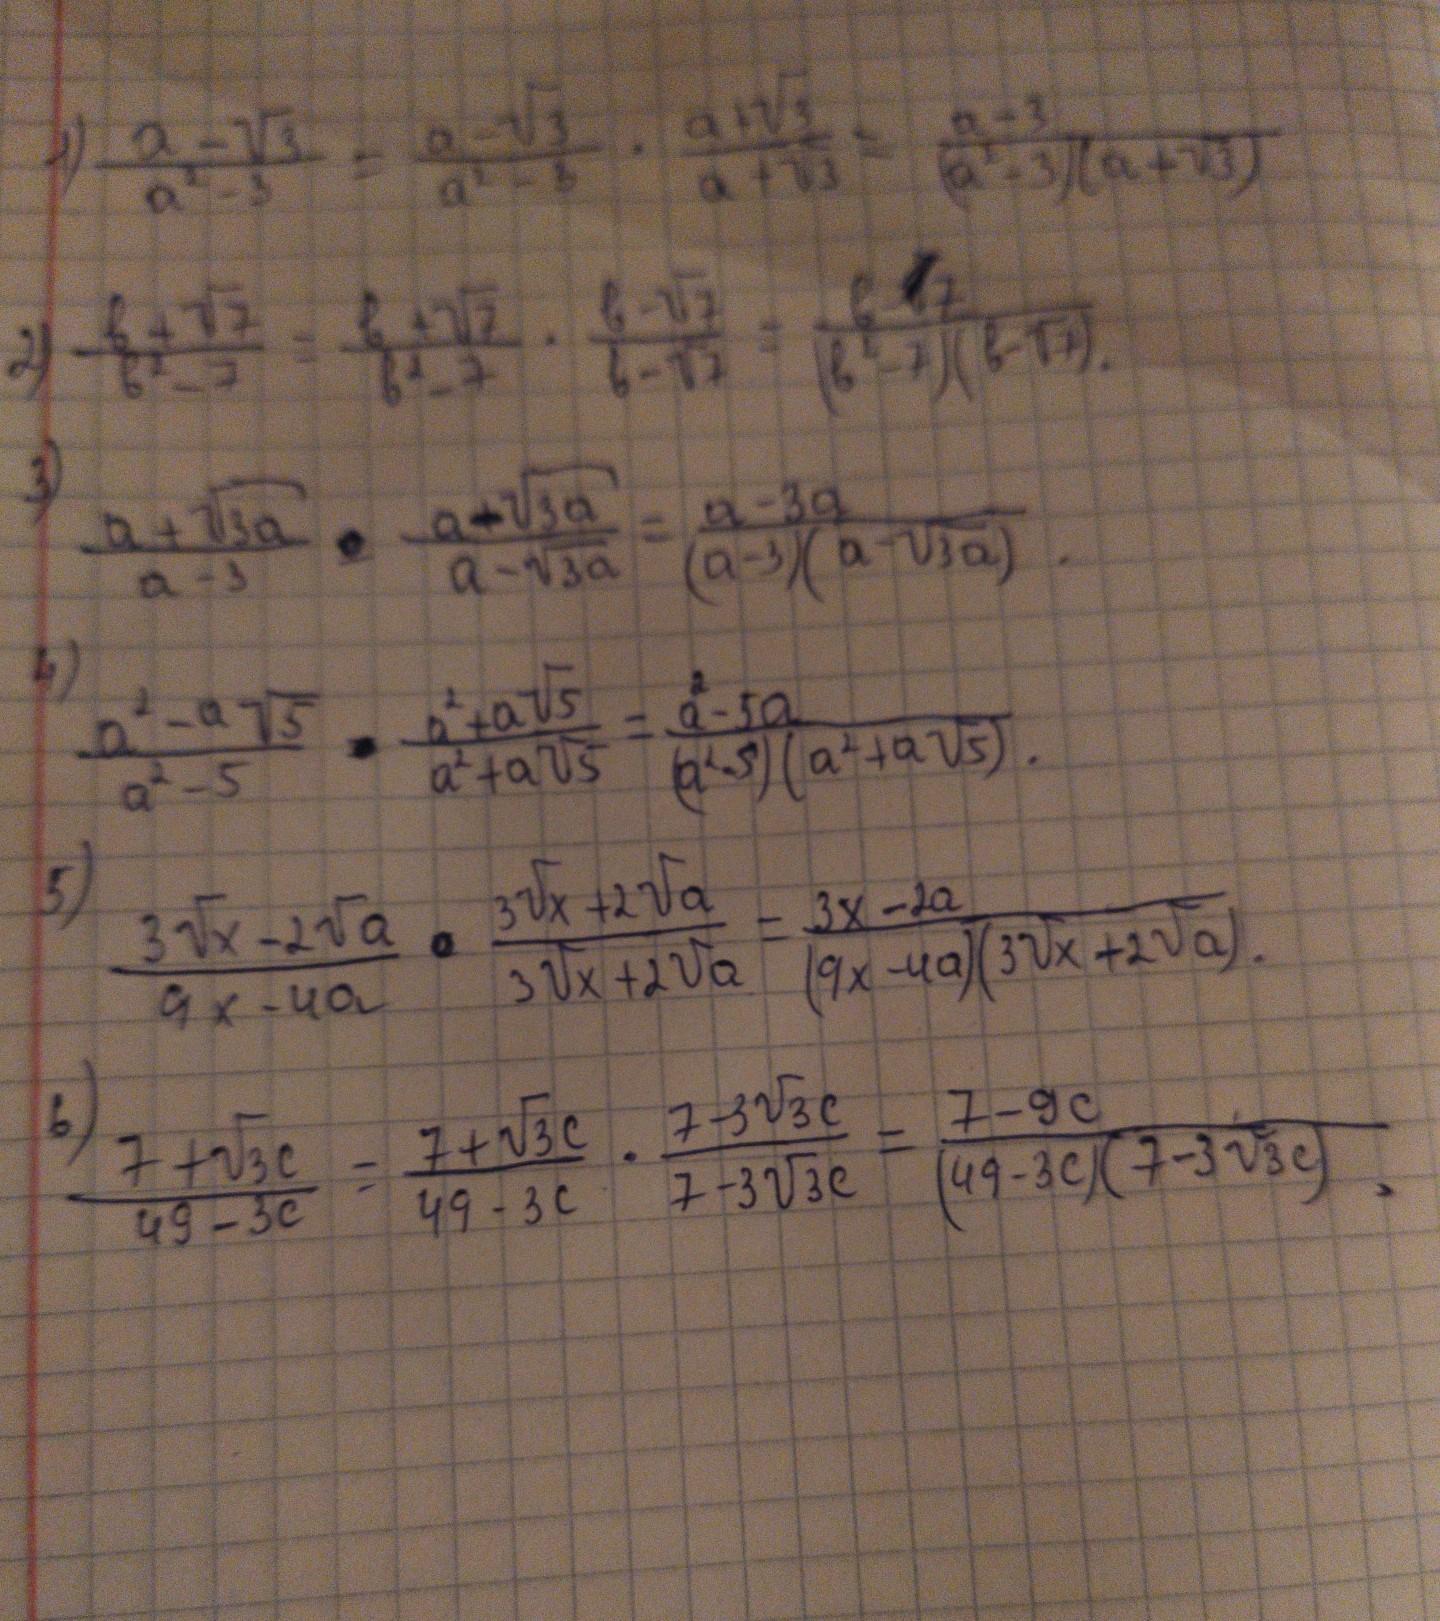 1) (a-√3)/(a²-3) = (a-√3)/(a²-3) · (a+√3)/(a+√3) = (a-3)/((a²-3)(a+√3))
2) (в+√7)/(в²-7) = (в+√7)/(в²-7) · (в-√7)/(в-√7) = (в-7)/((в²-7)(в-√7)).
3) (a+√3a)/(a-3) · (a-√3a)/(a-√3a) = (a-3a)/((a-3)(a-√3a)).
4) (a²-a√5)/(a²-5) · (a²+a√5)/(a²+a√5) = (a²-5a)/((a²-5)(a²+a√5)).
5) (3√x-2√a)/(9x-4a) · (3√x+2√a)/(3√x+2√a) = (3x-2a)/((9x-4a)(3√x+2√a)).
6) (7+√3c)/(49-3c) = (7+√3c)/(49-3c) · (7-3√3c)/(7-3√3c) = (7-9c)/((49-3c)(7-3√3c)).